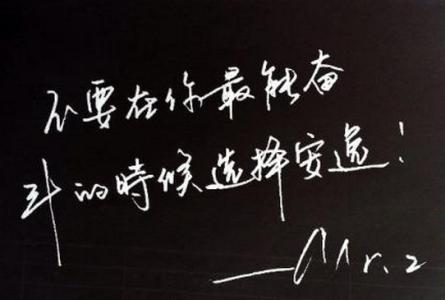 不要在你最能奋
斗的時候选择安逸！
—Mr.Z